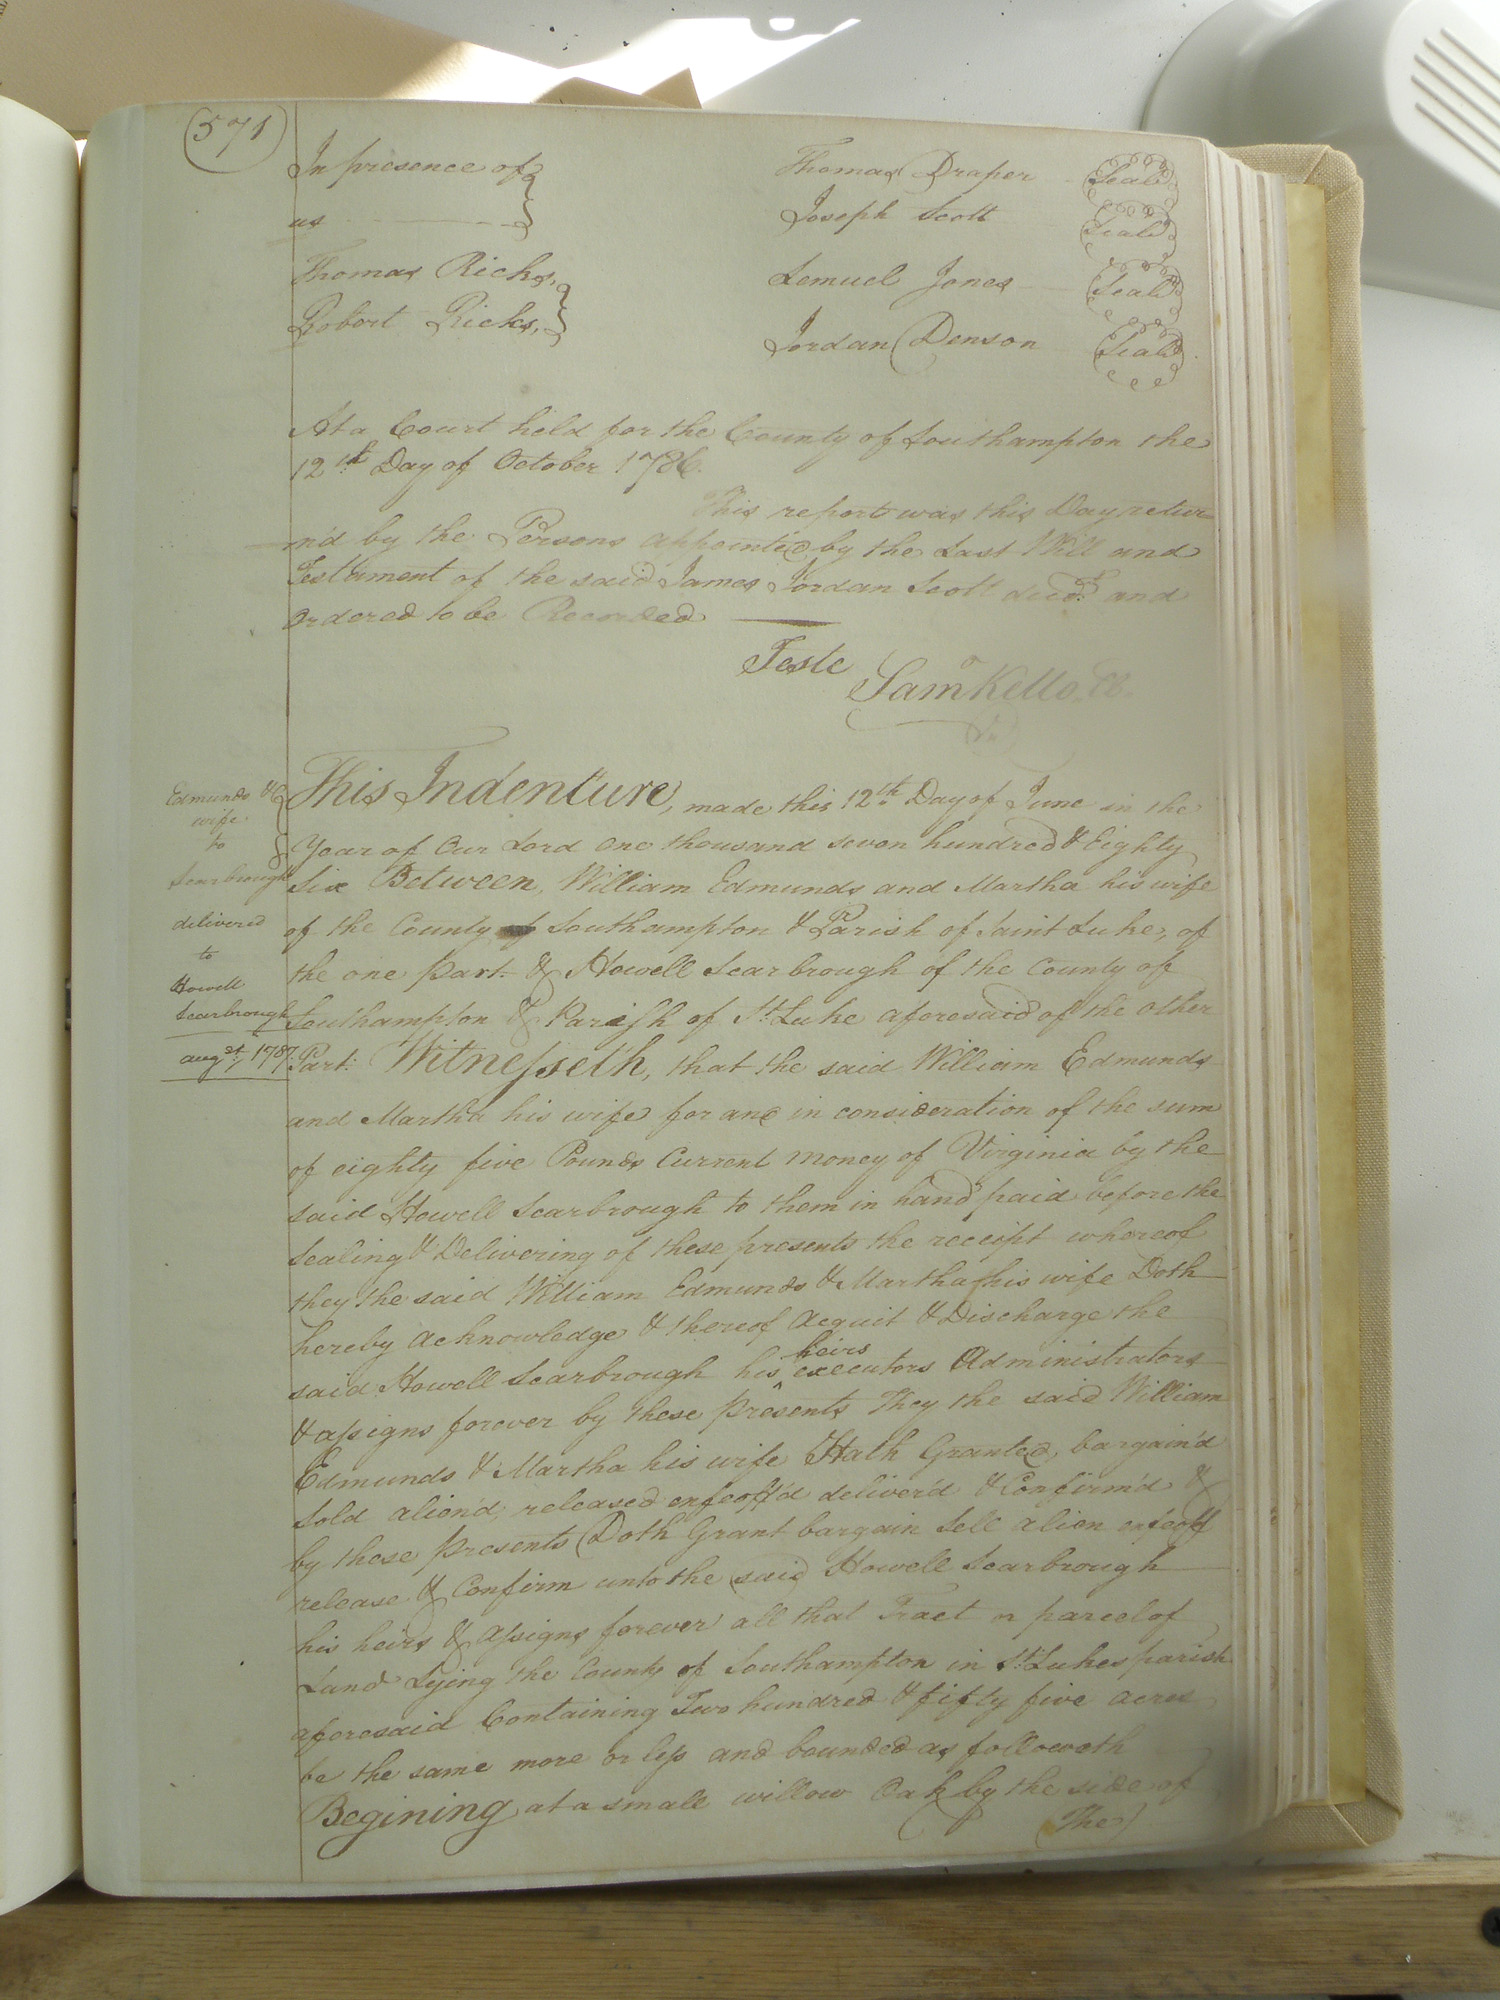 571
In presence of }
us }
Thomas Ricks, }
Robert Ricks, }
Thomas Draper Seal
Joseph Scott Seal
Lemuel Jones Seal
Jordan Denson Seal
At a Court held for the County of Southampton the
12th Day of October 1786.
This report was this Day retur
n'd by the Persons appointed by the Last Will and
Testament of the said James Jordan Scott decd. and
Ordered to be Recorded
Teste
Samo Kello, CC.
Edmunds &
wife
to
Scarbrough
delivered
to
Howell
Scarbrough
augst, 1787
This Indenture, made this 12th Day of June in the
Year of Our Lord One thousand seven hundred & Eighty
Six Between, William Edmunds and Martha his wife
of the County of Southampton & Parish of Saint Luke, of
the one Part. & Howell Scarbrough of the County of
Southampton & Parish of St. Luke aforesaid of the other
Part: Witnesseth, that the said William Edmunds
and Martha his wife for and in consideration of the sum
of eighty five Pounds Current money of Virginia by the
said Howell Scarbrough to them in hand paid before the
Sealing & Delivering of these presents the receipt whereof
they the said William Edmunds & Martha his wife Doth
hereby acknowledge & thereof acquit & Discharge the
said Howell Scarbrough his ^heirs executors Administrators
& assigns forever by these Presents They the said William
Edmunds & Martha his wife Hath Granted, bargain'd
Sold alien'd, released enfeoff'd deliver'd & Confirm'd &
by these Presents Doth Grant bargain Sell alien enfeoff
release & Confirm unto the said Howell Scarbrough
his heirs & assigns forever all that Tract or parcel of
Land Lying the County of Southampton in St. Lukes parish
aforesaid Containing Two hundred & fifty five acres
be the same more or less and bounded as followeth
Begining at a small willow Oak by the side of
(The)